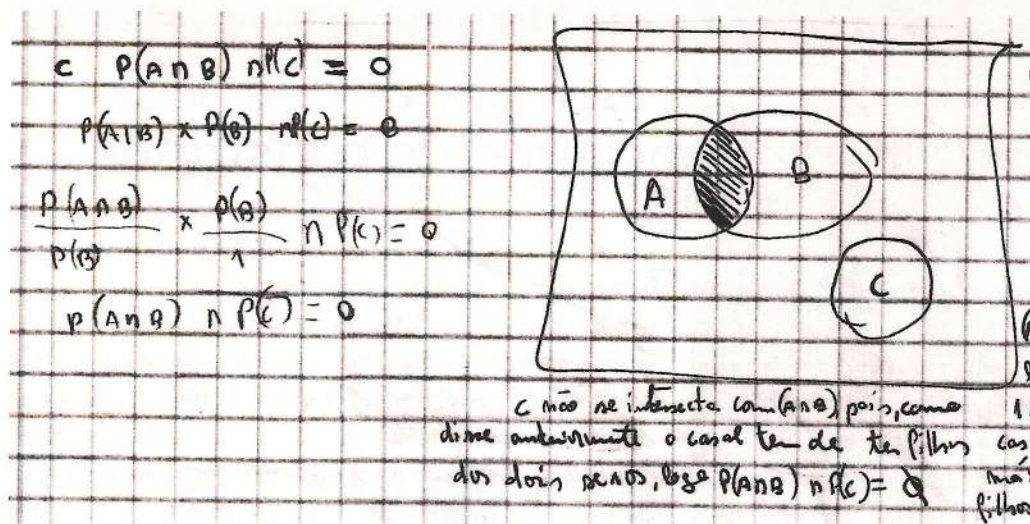 c P(A∩B) ∩P(C) = 0
P(A|B) x P(B) ∩P(C) = 0
P(A∩B) x P(B) ∩ P(C) = 0
P(B) 1
p(A∩B) ∩ P(C) = 0
A B
C
C não se intersecta com (A∩B) pois, como
disse anteriormente o casal tem de ter filhos
dos dois sexos, logo P(A∩B) ∩ P(C) = 0
1
cas
filhos